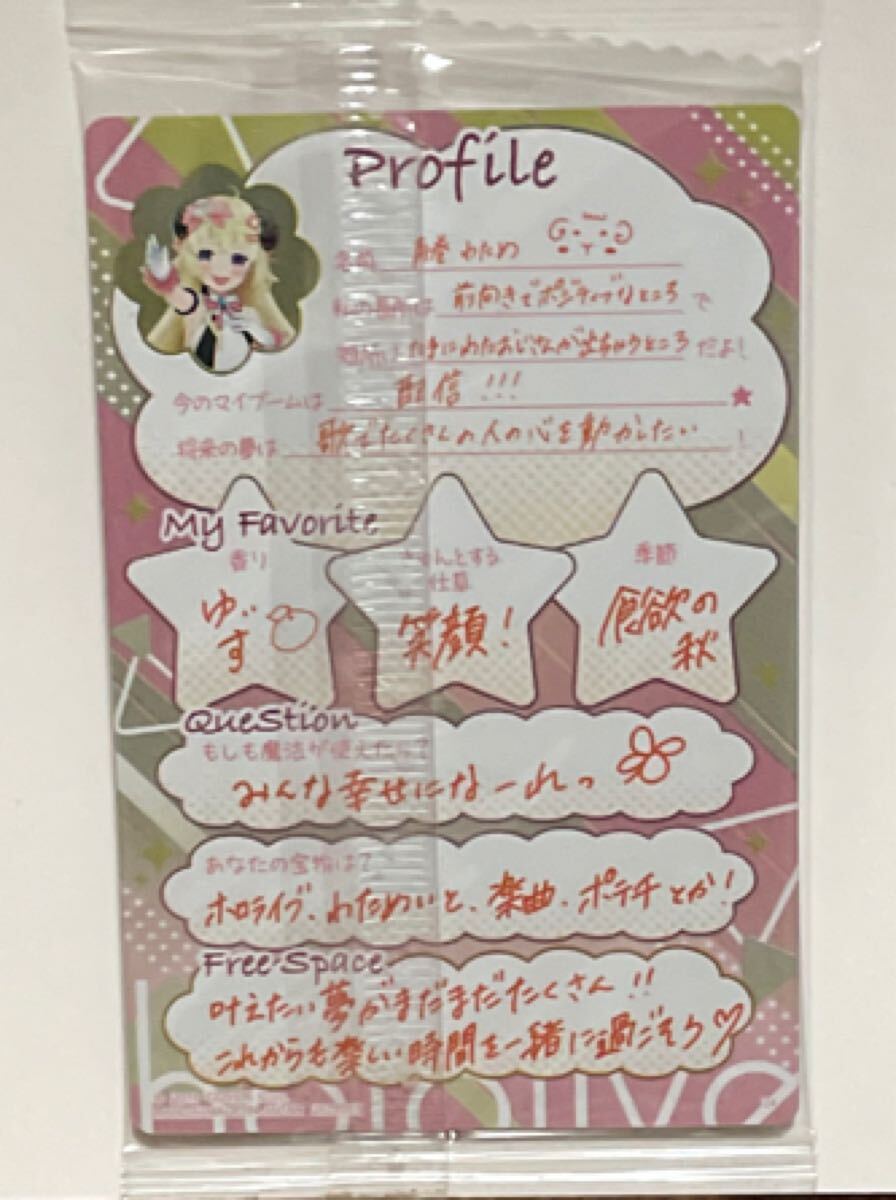 Profile
名前 角巻わため
私の長所は 前向きでポジティブなところ で
短所は たまにわためおじさんが出ちゃうところ だよ!
今のマイブームは 配信!!! ★
将来の夢は 歌でたくさんの人の心を動かしたい !
My Favorite
香り
ゆず
きゅんとする仕草
笑顔!
季節
食欲の
秋
QueStion
もしも魔法が使えたら?
みんな幸せになーれっ
あなたの宝物は?
ホロライブ、わためいと、楽曲、ポテチとか!
Free Space
叶えたい夢がまだまだたくさん!!
これからも楽しい時間を一緒に過ごそう♡
hololive